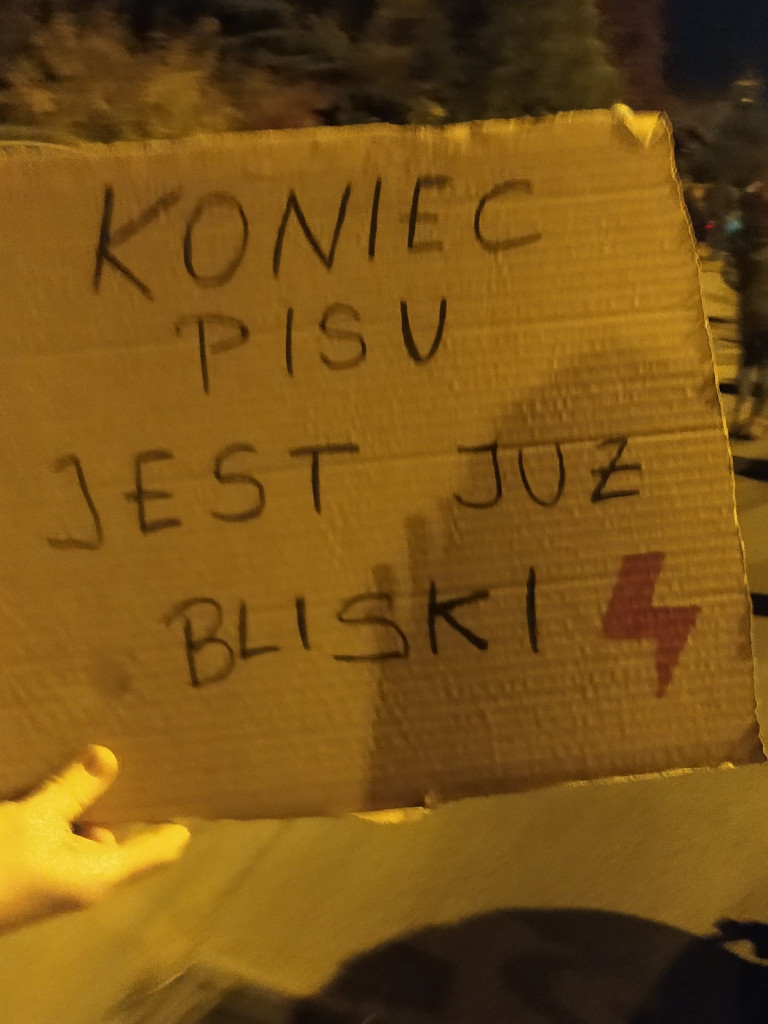 KONIEC
PISU
JEST JUZ
BLISKI